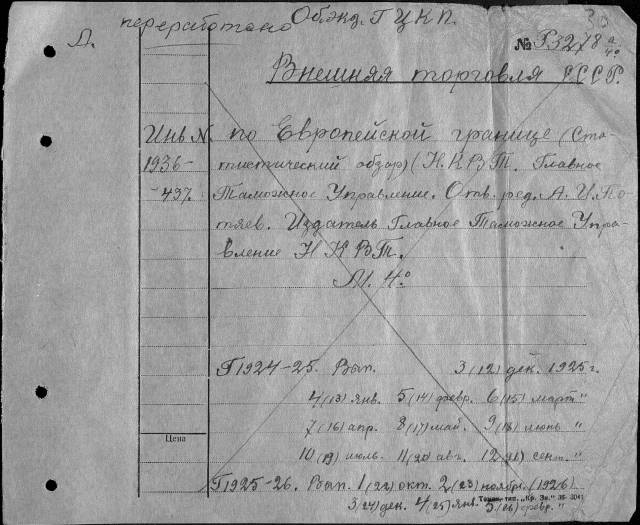 переработано Обәкд. Г Ц К П.
Д.
№ Г3278 а/4°
Внешняя торговля СССР.
Инв N. по Европейской границе (Ста-
1936- тистический обзор) (Н. К. В Т. Главное
-437. Таможное Управление. Отв. ред. А. И. По-
тяев. Издатель Главное Таможное Упра-
вление Н К В Т.
М. 4°
Г1924-25. Вып. 3 (12) дек. 1925 г.
4 (13) янв. 5 (14) февр. 6 (15) март "
7 (16) апр. 8 (17) май. 9 (18) июнь "
Цена
10 (19) июль. 11 (20) авг. 12 (21) сент. "
Г1925-26. Вып. 1 (22) окт. 2 (23) ноябрь. (1926)
тип. „Кр. Зн." 35- 3041
3 (24) дек. 4 (25) янв. 5 (26) февр. "